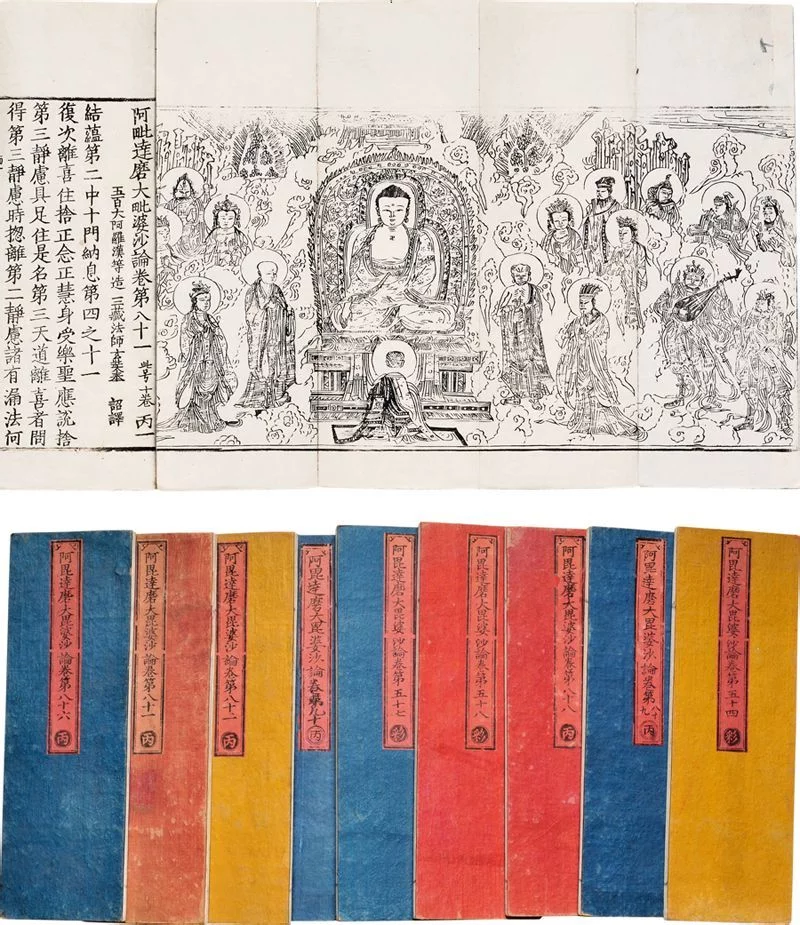 阿毗達磨大毗婆沙論卷第八十一 此号十卷 丙一
五百大阿羅漢等造 三藏法師玄奘奉 詔譯
結蘊第二中十門納息第四之十一
復次離喜住捨正念正慧身受樂聖應說捨
第三靜慮具足住是名第三天道離喜者問
得第三靜慮時揔離第二靜慮諸有漏法何
阿毘達磨大毘婆沙論卷第八十六 丙
阿毘達磨大毘婆沙論卷第八十一 丙
阿毘達磨大毘婆沙論卷第八十二 丙
阿毘達磨大毘婆沙論卷第九十 丙
阿毘達磨大毘婆沙論卷第五十七 彩
阿毘達磨大毘婆沙論卷第五十八 彩
阿毘達磨大毘婆沙論卷第八十八 丙
阿毘達磨大毘婆沙論卷第八十九 丙
阿毘達磨大毘婆沙論卷第五十四 彩